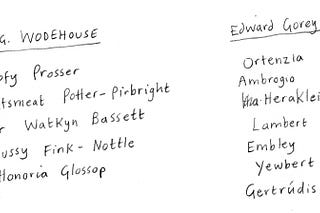 G. WODEHOUSE
ofy Prosser
tsmeat Potter-Pirbright
r Watkyn Bassett
ussy Fink-Nottle
Honoria Glossop
Edward Gorey
Ortenzia
Ambrogio
Heraklei
Lambert
Embley
Yewbert
Gertrúdis